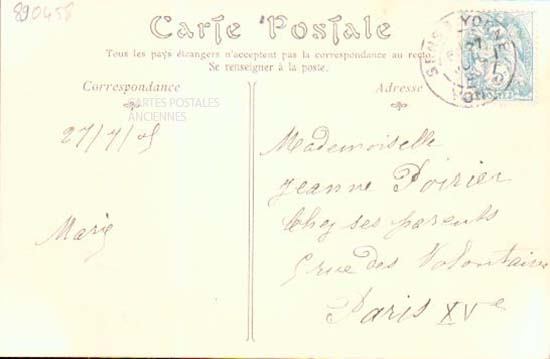 890458
Carte Postale
Tous les pays étrangers n'acceptent pas la correspondance au recto.
Se renseigner à la poste.
Correspondance
CARTES POSTALES
ANCIENNES
27/7/05
Marie
Adresse
SENS YONNE
27
Mademoiselle
Jeanne Poirier
Chez ses parents
5 rue des Volontaires
Paris XVe